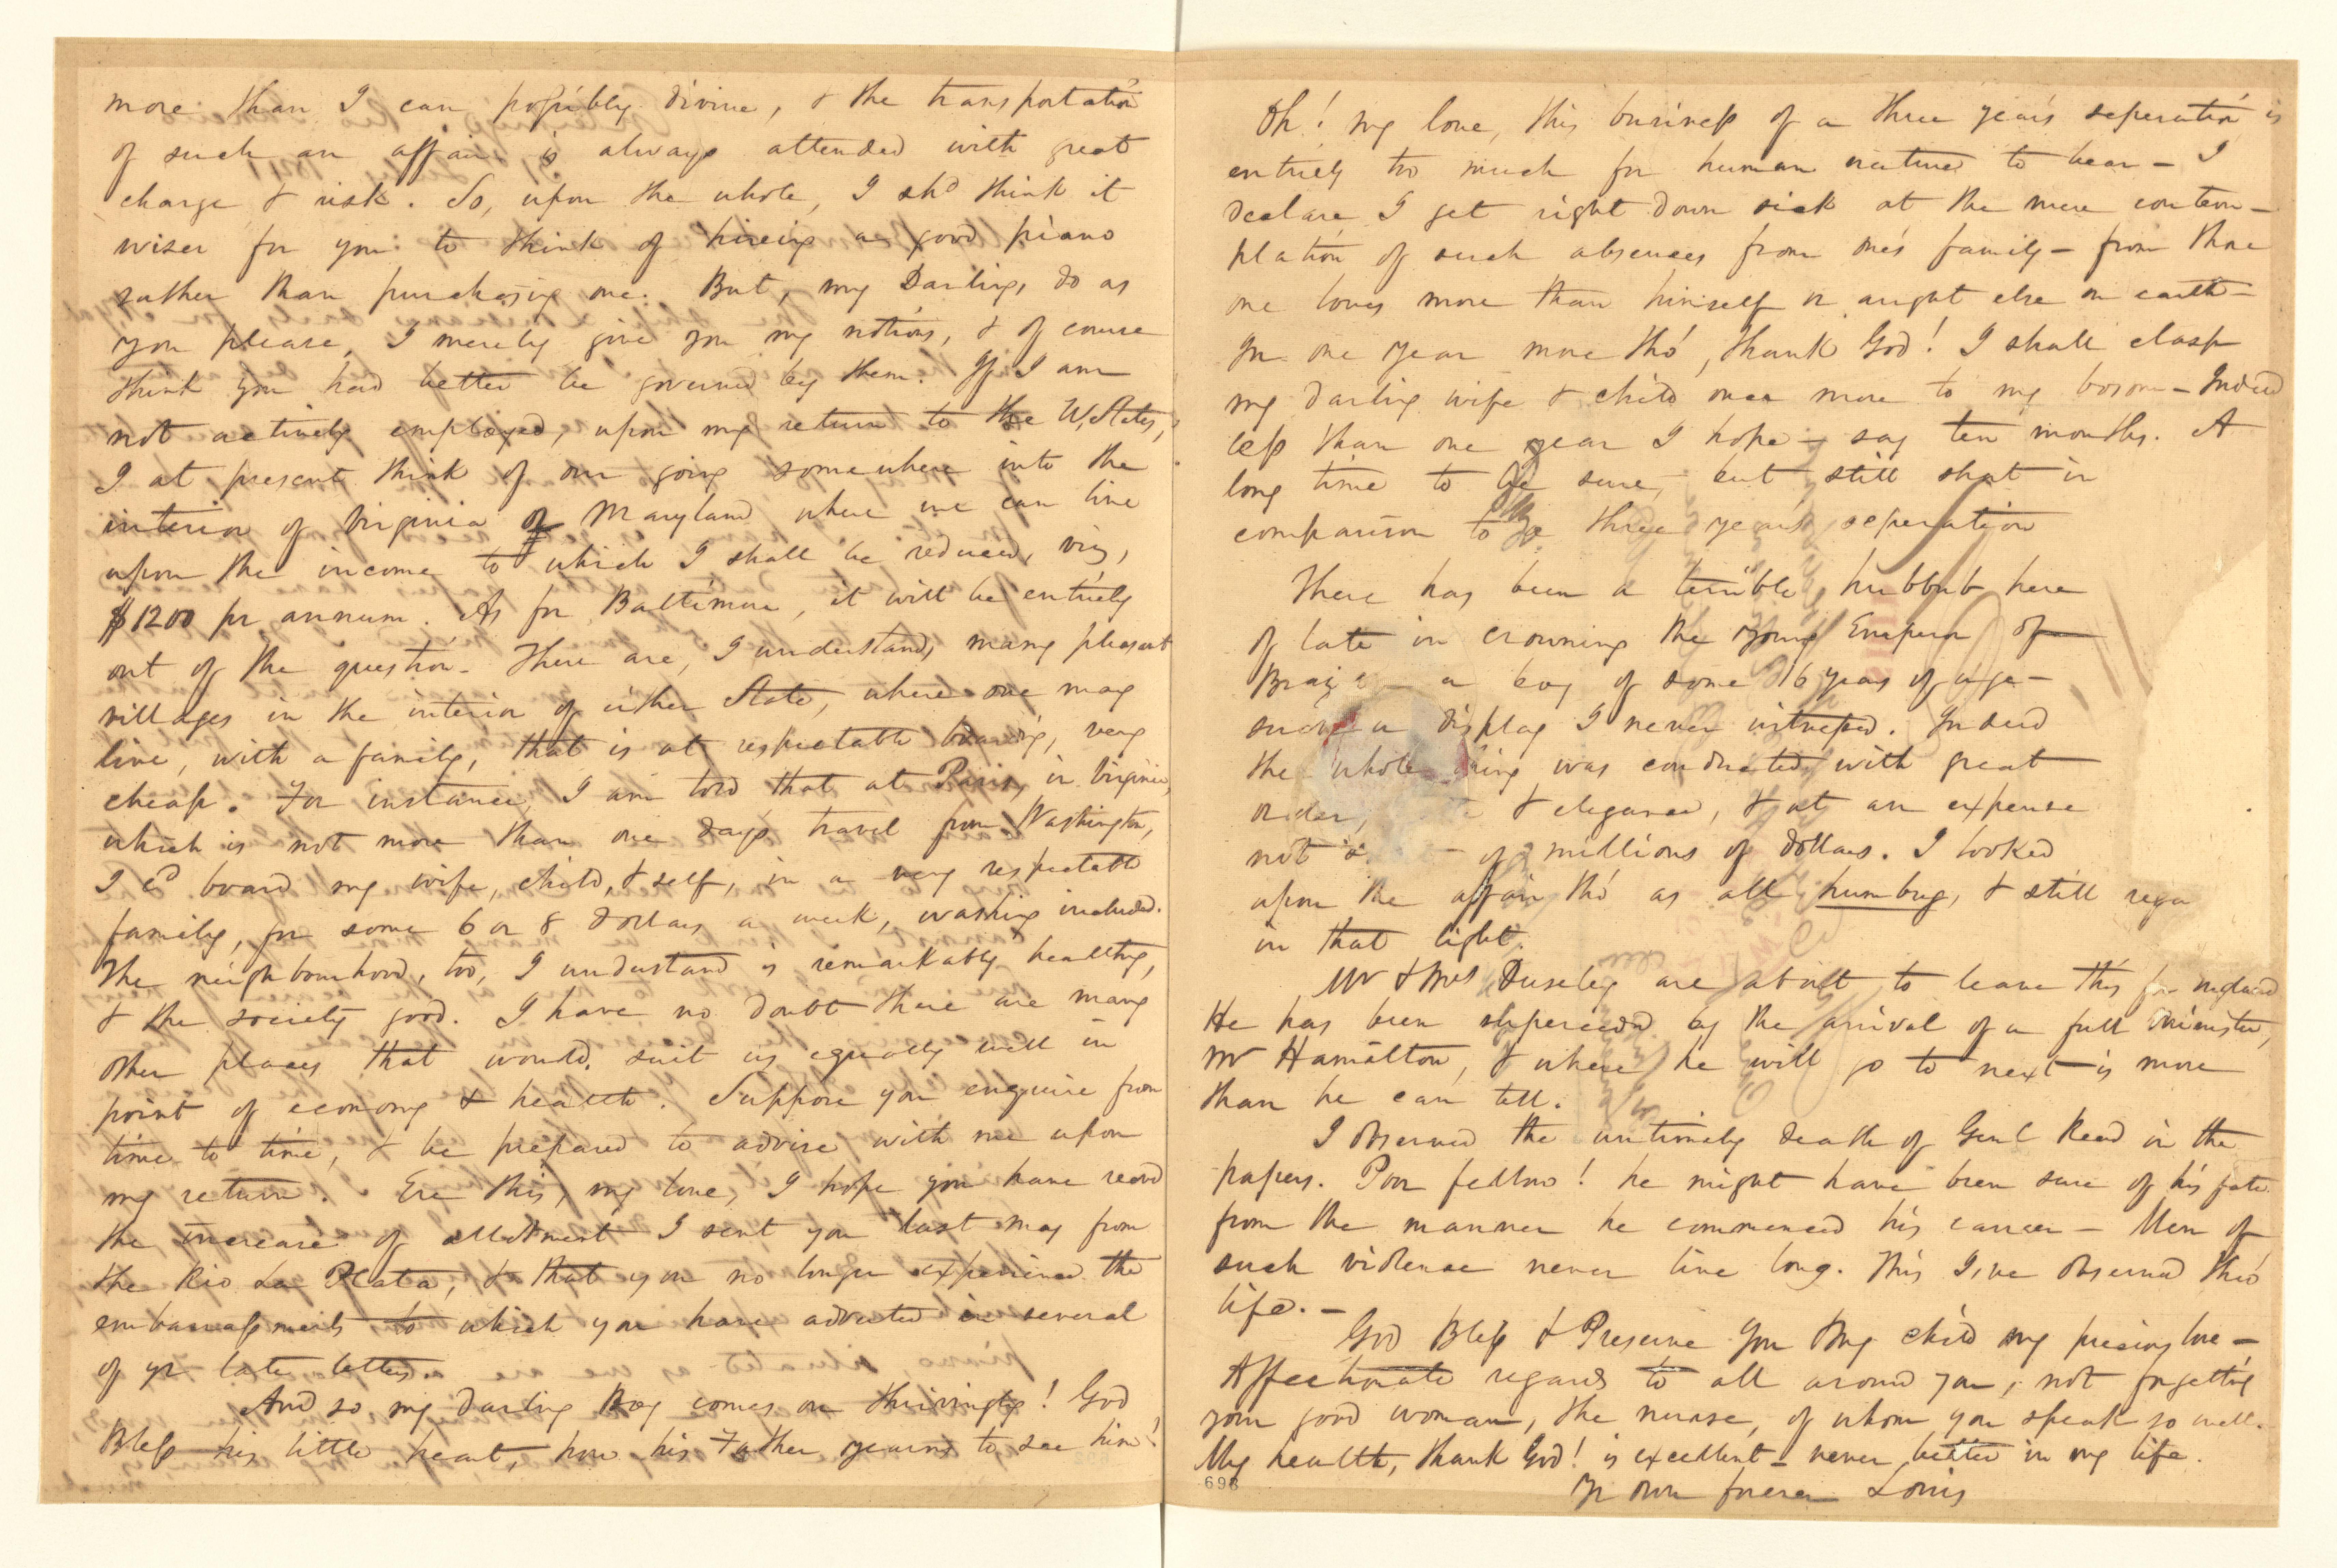 more than I can possibly divine, & the transportation
of such an affair is always attended with great
charge & risk. So, upon the whole, I shd think it
wiser for you to think of hireing a good piano
rather than purchasing one. But, my Darling, do as
you please, I merely give you my notions, & of course
think you had better be governed by them. If I am
not actively employed, upon my return to the U, States,
I at present think of our going somewhere into the
interior of Virginia or Maryland where we can live
upon the income to which I shall be reduced, viz,
$1200 pr annum. As for Baltimore, it will be entirely
out of the question. There are, I understand, many pleasant
villages in the interior of either State, where one may
live, with a family, that is at respectable boarding, very
cheap. For instance, I am told that at Paris, in Virginia,
which is not more than one days travel from Washington,
I cd board my wife, child, & self, in a very respectable
family, for some 6 or 8 dollars a week, washing included.
The neighbourhood, too, I understand is remarkably healthy,
& the society good. I have no doubt there are many
other places that would suit us equally well in
point of economy & health. Suppose you enquire from
time to time, & be prepared to advise with me upon
my return. Ere this, my love, I hope you have recvd
the increase of allotment I sent you last May from
the Rio La Plata, & that you no longer experience the
embarrassments to which you have adverted in several
of yr late letters.
And so my darling Boy comes on thrivingly! God
Bless his little heart, how his Father yearns to see him!
Oh! my love, this business of a three years seperation is
entirely too much for human nature to bear – I
declare I get right down sick at the mere contem-
plation of such absences from one's family – from those
one loves more than himself or aught else on earth –
In one year more tho', thank God! I shall clasp
my darling wife & child once more to my bosom – Indeed
less than one year I hope – say ten months. A
long time to be sure, but still short in
comparison to three years seperation
There has been a terrible hubbub here
of late in crowning the young Emperor of
Brazil – a boy of some 16 years of age –
such a display I never witnessed. Indeed
the whole thing was conducted with great
order, & elegance, & at an expense
not of millions of dollars. I looked
upon the affair tho' as all humbug, & still
in that light.
Mr & Mrs Ouseley are about to leave this for England
He has been superceeded by the arrival of a full Minister,
Mr Hamilton, & where he will go to next is more
than he can tell.
I observed the untimely death of Genl Read in the
papers. Poor fellow! he might have been sure of his fate
from the manner he commenced his career – Men of
such violence never live long. This I've observed thro'
life. –
God Bless & Preserve you & my child my precious love –
Affectionate regards to all around you, not forgetting
your good woman, the nurse, of whom you speak so well.
My health, thank God! is excellent – never better in my life.
698
Yr own forever Louis